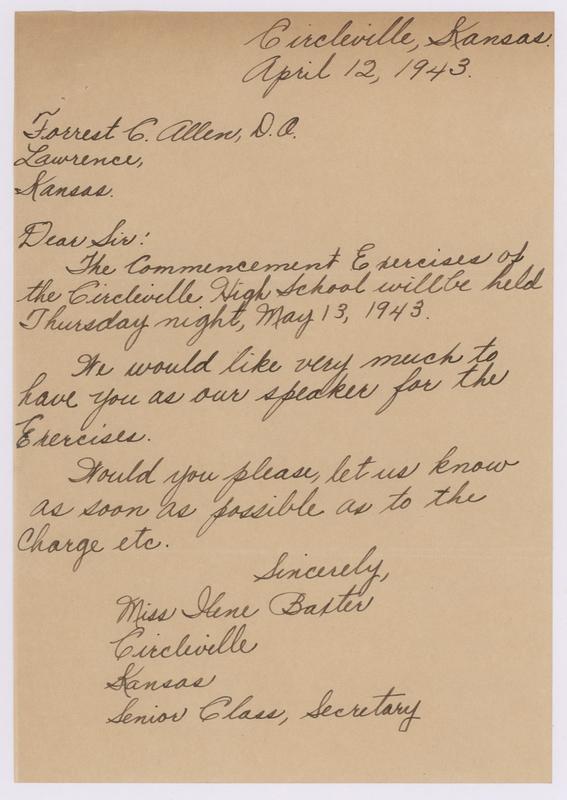 Circleville, Kansas.
April 12, 1943.
Forrest C. Allen, D.O.
Lawrence,
Kansas.
Dear Sir:
The Commencement Exercises of
the Circleville High School will be held
Thursday night, May 13, 1943.
We would like very much to
have you as our speaker for the
Exercises.
Would you please, let us know
as soon as possible as to the
Charge etc.
Sincerely,
Miss Ilene Baxter
Circleville
Kansas
Senior Class, Secretary